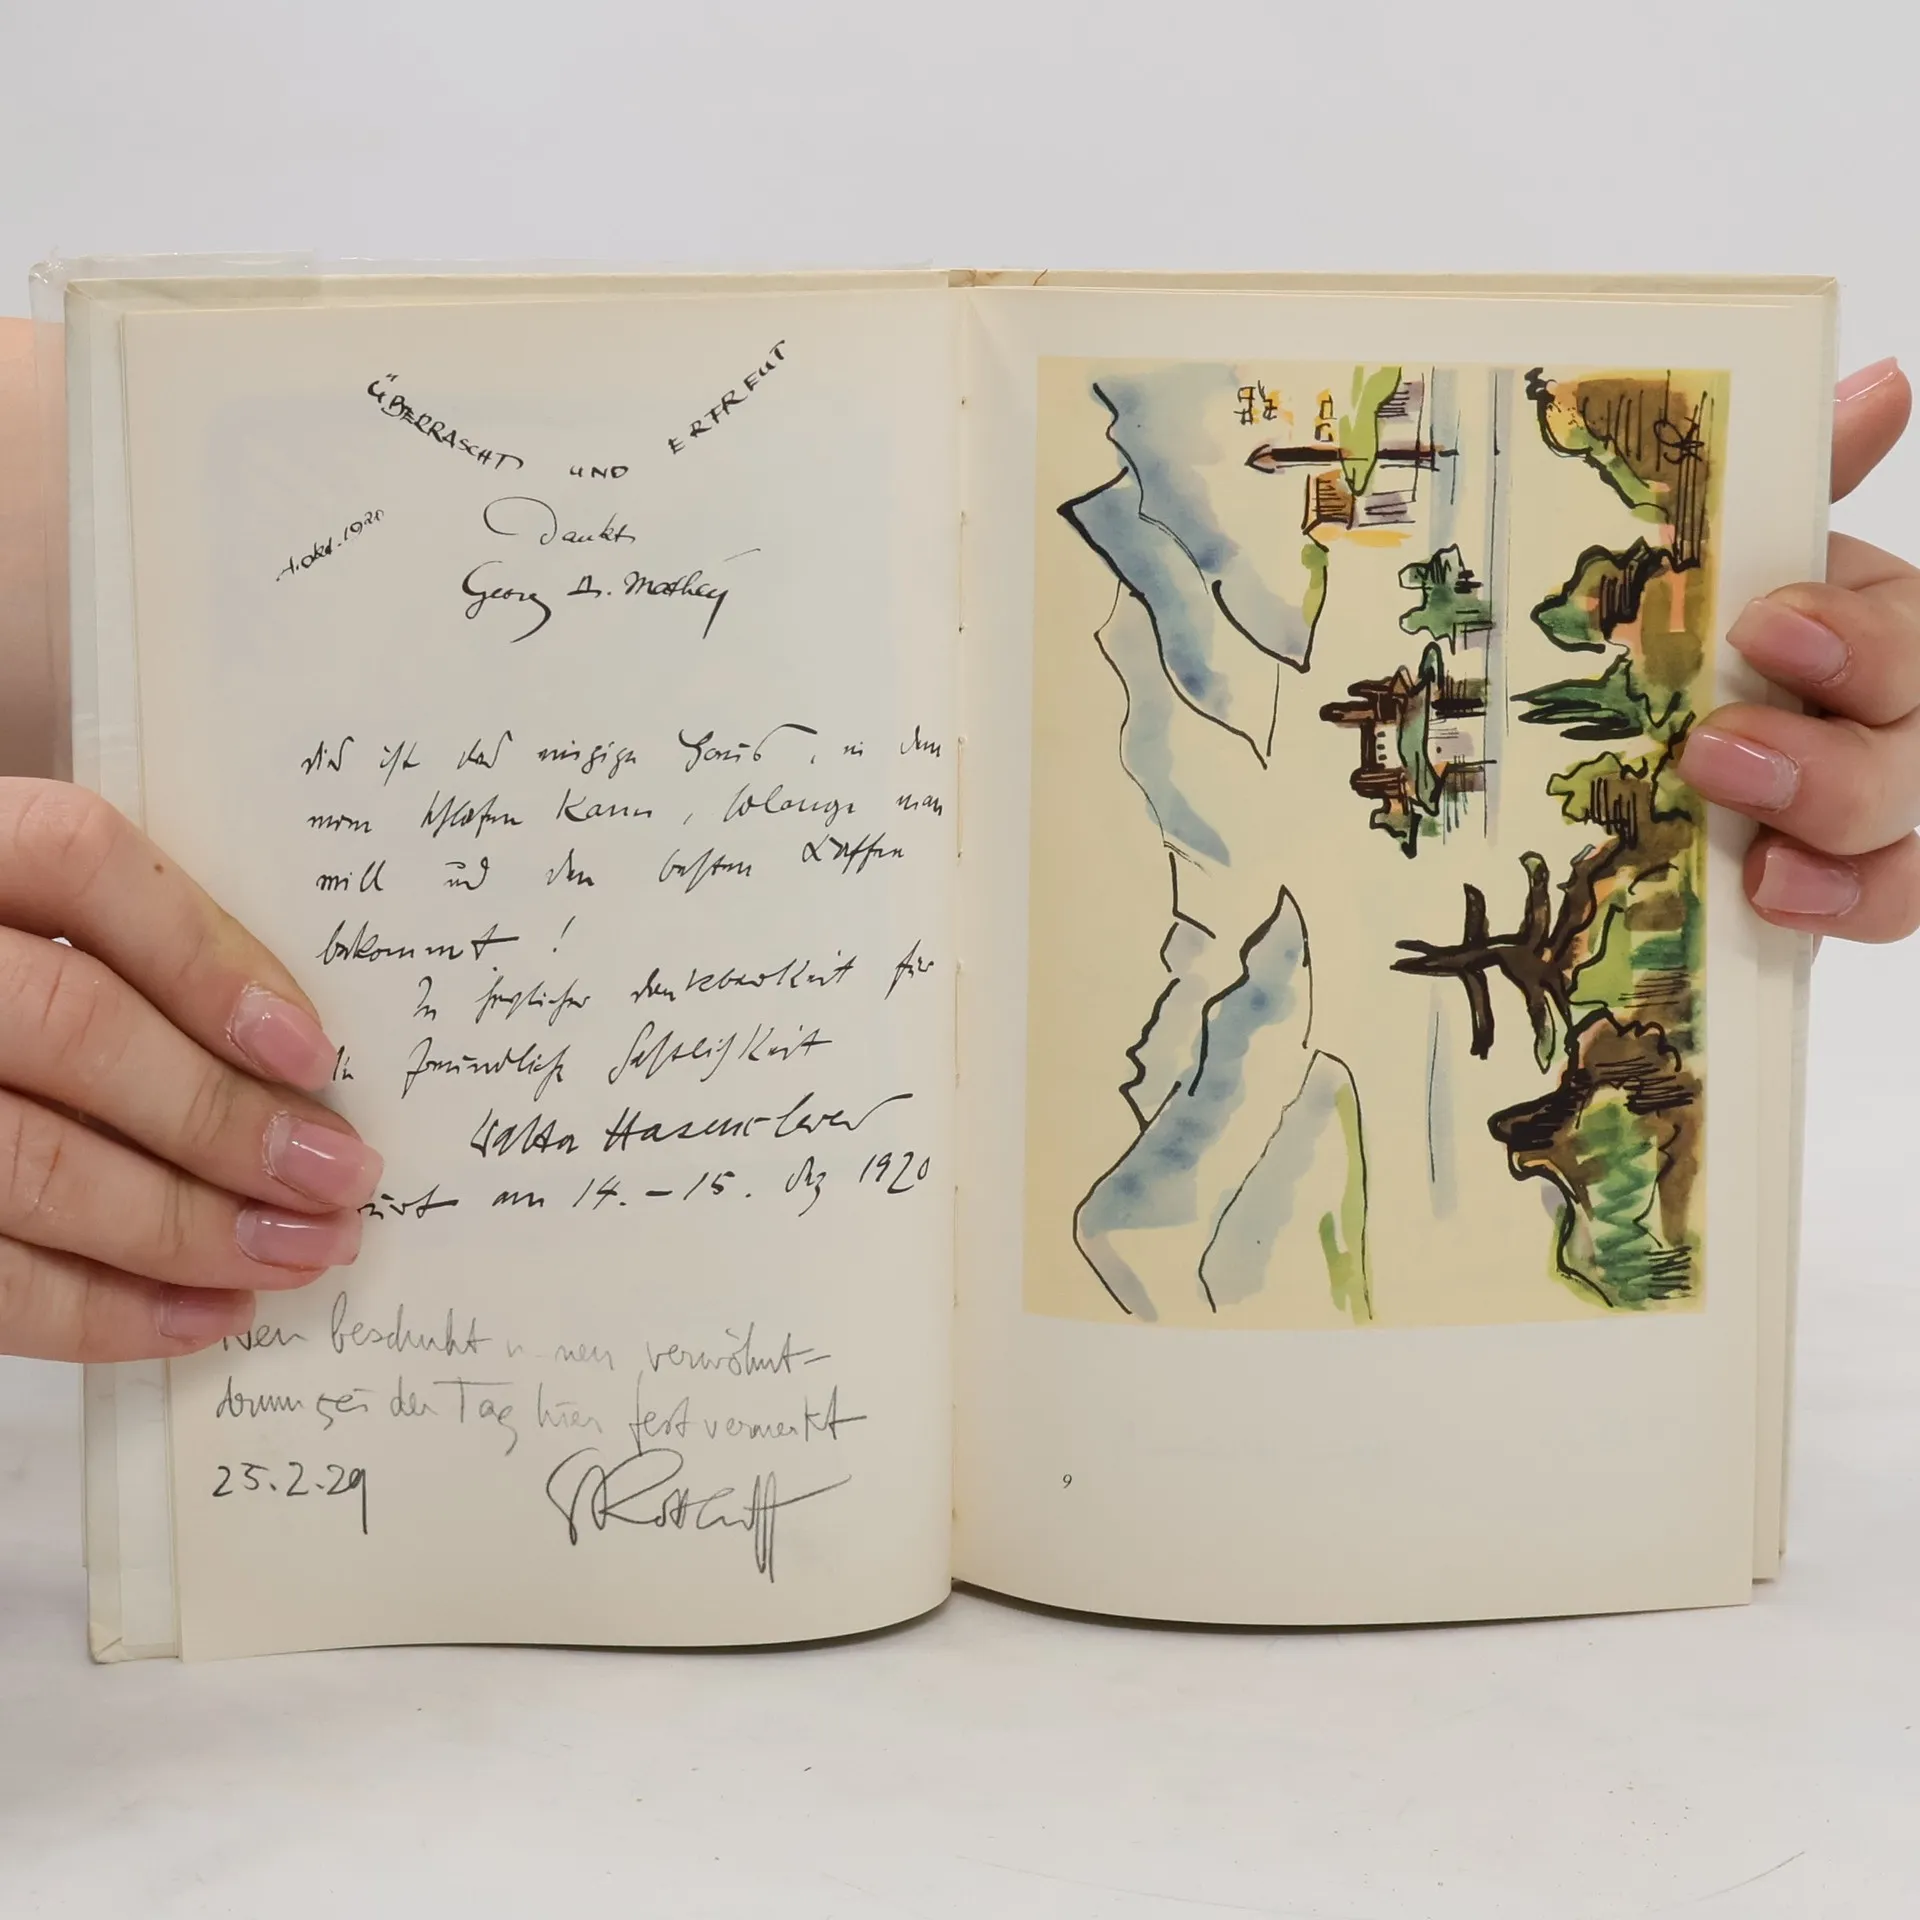 ÜBERRASCHT UND ERFREUT
1. Okt. 1920
Dankt
Georg A. Mathéy
dies ist das einzige Haus, in dem
man schlafen kann, solange man
will und den besten Kaffee
bekommt!
In herzlicher Dankbarkeit für
die freundliche Gastlichkeit
Walter Hasenclever
am 14. – 15. Dez 1920
Neu beschuht u. neu verwöhnt –
drum sei der Tag hier fest vermerkt
25.2.29
9